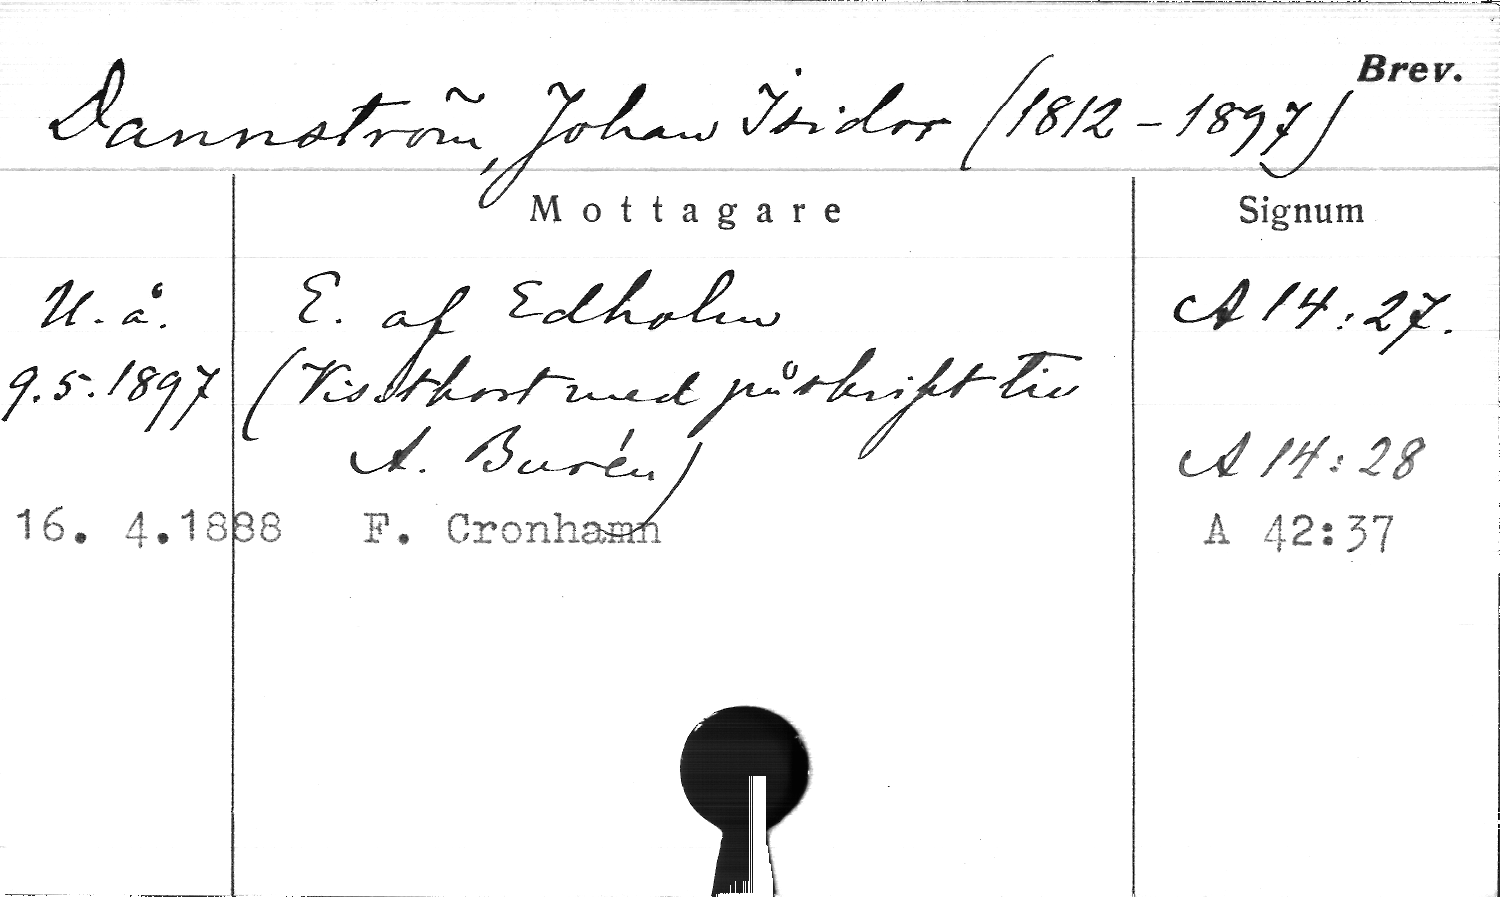 Brev.
Dannström, Johan Isidor (1812-1897)
Mottagare Signum
U. å. E. af Edholm A 14:27.
9.5.1897 (Visitkort med påskrift till
A. Burén) A 14:28
16. 4.1888 F. Cronhamn A 42:37